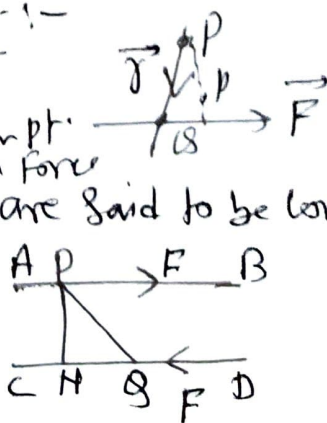 :-
r⃗ P
p
pt. F⃗
Q
Force
are said to be
A P F B
C H Q F D